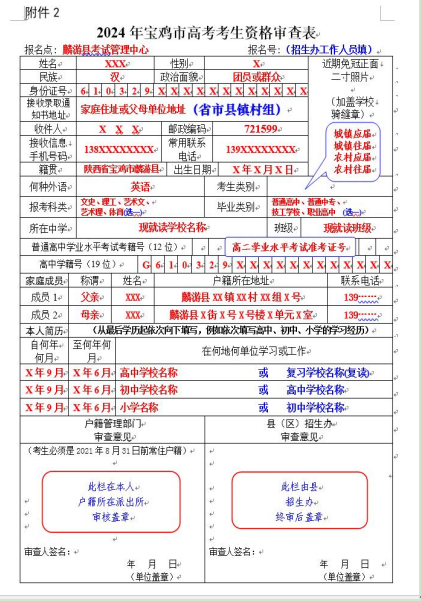 附件 2
2024 年宝鸡市高考考生资格审查表
报名点：麟游县考试管理中心 报名号：（招生办工作人员填）
姓名 XXX 性别 X 近期免冠正面二寸照片
民族 汉 政治面貌 团员或群众
身份证号 6-1-0-3-2-9-X X X X X X X X X X X X
（加盖学校骑缝章）
接收录取通知书地址 家庭住址或父母单位地址（省市县镇村组）
收件人 X X X 邮政编码 721599
接收信息手机号码 138XXXXXXXX 常用联系电话 139XXXXXXXX
城镇应届
城镇往届
农村应届
农村往届
籍贯 陕西省宝鸡市麟游县 出生日期 X 年 X 月 X 日
何种外语 英语 考生类别
报考科类 文史、理工、艺术文、艺术理、体育(选一) 毕业类别 普通高中、普通中专、技工学校、职业高中（选一）
所在中学 现就读学校名称 班级 现就读班级
普通高中学业水平考试考籍号（12 位） 高二学业水平考试准考证号
高中学籍号（19 位） G 6 1 0 3 2 9 X X X X X X X X X X X X
家庭成员 称谓 姓名 户籍所在地址 联系电话
成员 1 父亲 XXX 麟游县 XX 镇 XX 村 XX 组 X 号 139······
成员 2 母亲 XXX 麟游县 X 街 X 号 X 号楼 X 单元 X 室 139······
本人简历 （从最后学历起依次向下填写，例如依次填写高中、初中、小学的学习经历）
自何年何月 至何年何月 在何地何单位学习或工作
X 年 9 月 X 年 6 月 高中学校名称 或 复习学校名称(复读)
X 年 9 月 X 年 6 月 初中学校名称 或 高中学校名称
X 年 9 月 X 年 6 月 小学名称 或 初中学校名称
户籍管理部门审查意见 县（区）招生办审查意见
（考生必须是 2021 年 8 月 31 日前常住户籍）
此栏在本人 此栏由县
户籍所在派出所 招生办
审核盖章 终审后盖章
审查人签名： 审查人签名：
年 月 日 年 月 日
（单位盖章） （单位盖章）